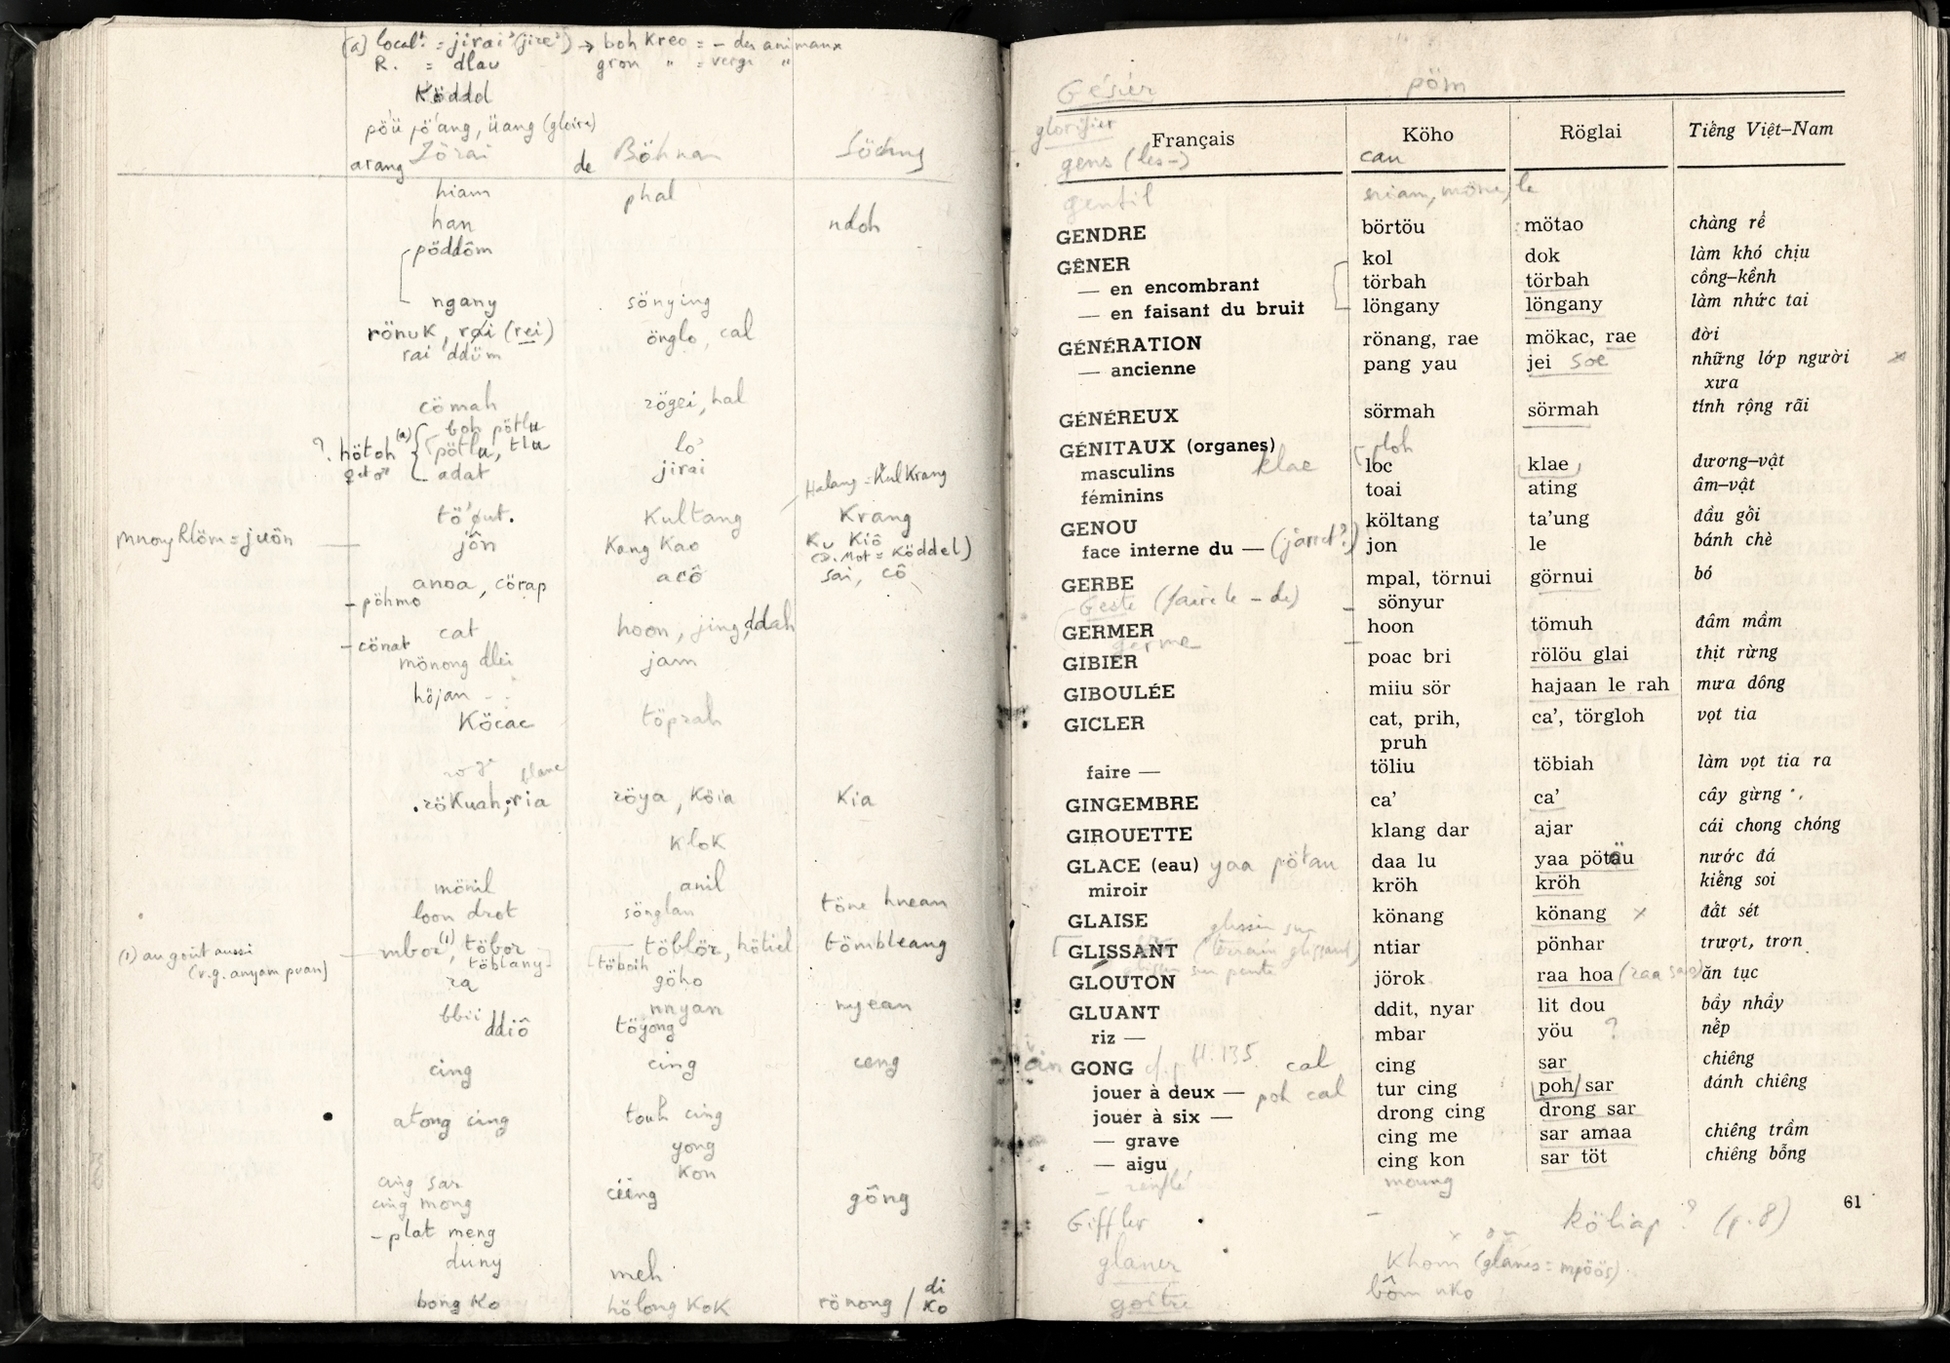 (a) local.t = jirai' (jire') → boh kreo = - des animaux
R. = dlau gron " = verge "
Köddel
pöü jö'ang, üang (gloire)
arang Jörai de Böhnan Södang
hiam phal
han ndoh
pöddôm
ngany sönying
rönuk, rai (rei) önglo, cal
rai 'ddüm
cömah rögei, hal
boh pötlu
? hötoh (a) pötlu, tlu lo'
adat jirai
Halang = Kul Krang
tö'ut. Kultang Krang
mnong Rlöm = juôn jôn Kang Kao Ku Kiô
Köddel)
anoa, cörap acô sai, cô
- pöhmo
cat hoon, jing, ddah
- cönat
mönong dlei jam
höjan
Köcac töprah
blanc
rökuah, ria röya, Köia Kia
Klok
mönil anil
loon drot sönglan töne hnean
(1) au goût aussi mbor (1), töbor töblör, hötiel tömbleang
(v.g. anyam puan) töblany töboih
ra göho
bbii nnyan nyean
ddiô töyong
cing cing ceng
atong cing touh cing
yong
kon
cing sar
cing mong ciing gông
- plat meng
duny
meh
bong ko hölong kok rönong / di ko
Gésier pöm
glorifier
Français Köho Röglai Tiếng Việt–Nam
gens (les -) cau
gentil
GENDRE börtöu mötao chàng rể
GÊNER kol dok làm khó chịu
— en encombrant törbah törbah cồng–kềnh
— en faisant du bruit löngany löngany làm nhức tai
GÉNÉRATION rönang, rae mökac, rae đời
— ancienne pang yau jei soe những lớp người
xưa
GÉNÉREUX sörmah sörmah tính rộng rãi
GÉNITAUX (organes) ploh
masculins klae loc klae dương–vật
féminins toai ating âm–vật
GENOU költang ta'ung đầu gối
face interne du — (jarret?) jon le bánh chè
GERBE mpal, törnui görnui bó
Geste (faire le - de) sönyur
GERMER hoon tömuh đâm mầm
germe
GIBIER poac bri rölöu glai thịt rừng
GIBOULÉE miiu sör hajaan le rah mưa dông
GICLER cat, prih, ca', törgloh vọt tia
pruh
faire — töliu töbiah làm vọt tia ra
GINGEMBRE ca' ca' cây gừng
GIROUETTE klang dar ajar cái chong chóng
GLACE (eau) yaa pötau daa lu yaa pötäu nước đá
miroir kröh kröh kiếng soi
GLAISE könang könang đất sét
glisser sur
GLISSANT (terrain glissant) ntiar pönhar trượt, trơn
glisser sur pente
GLOUTON jörok raa hoa ăn tục
GLUANT ddit, nyar lit dou bầy nhầy
riz — mbar yöu ? nếp
GONG cf. p. 135 cal cing sar chiêng
jouer à deux — poh cal tur cing poh/sar đánh chiêng
jouer à six — drong cing drong sar
— grave cing me sar amaa chiêng trầm
— aigu cing kon sar töt chiêng bổng
— renflé moung
61
Giffler – köliap ? (p. 8)
glaner khom (glanes = mpöös)
goître bôm nko